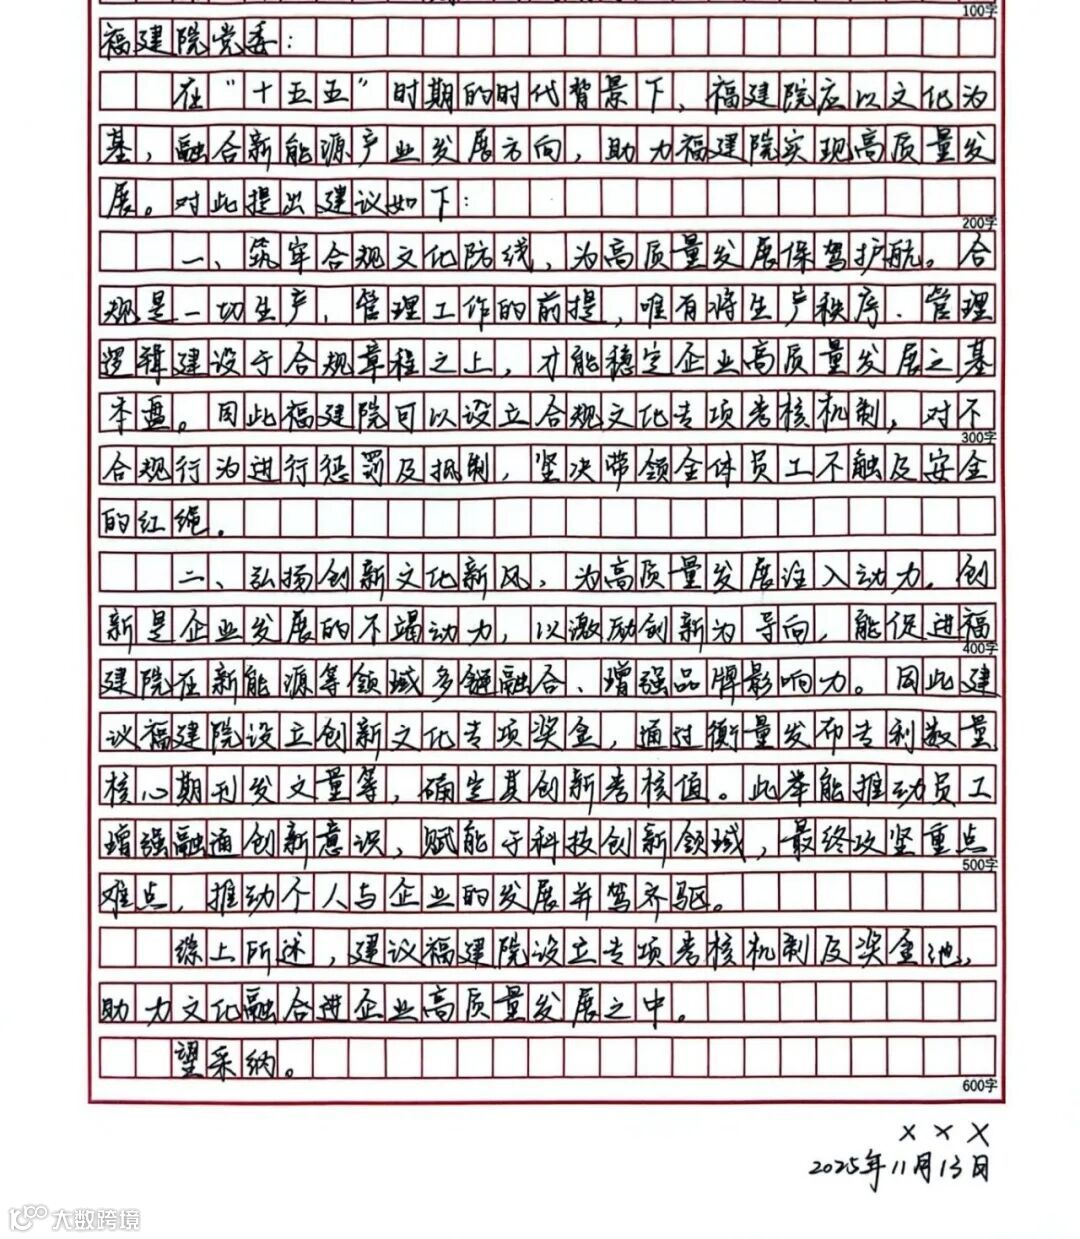 100字
福建院党委：
在“十五五”时期的时代背景下，福建院应以文化为
基，融合新能源产业发展方向，助力福建院实现高质量发
展。对此提出建议如下：
200字
一、筑牢合规文化防线，为高质量发展保驾护航。合
规是一切生产，管理工作的前提，唯有将生产秩序、管理
逻辑建设于合规章程之上，才能稳定企业高质量发展之基
本盘。因此福建院可以设立合规文化专项考核机制，对不
300字
合规行为进行惩罚及抵制，坚决带领全体员工不触及安全
的红绳。
二、弘扬创新文化新风，为高质量发展注入动力。创
新是企业发展的不竭动力，以激励创新为导向，能促进福
400字
建院在新能源等领域多链融合、增强品牌影响力。因此建
议福建院设立创新文化专项奖金，通过衡量发布专利数量
核心期刊发文量等，确定其创新考核值。此举能推动员工
增强融通创新意识，赋能于科技创新领域，最终攻坚重点
500字
难点，推动个人与企业的发展并驾齐驱。
综上所述，建议福建院设立专项考核机制及奖金池，
助力文化融合进企业高质量发展之中。
望采纳。
600字
×××
2025年11月13日
大数跨境